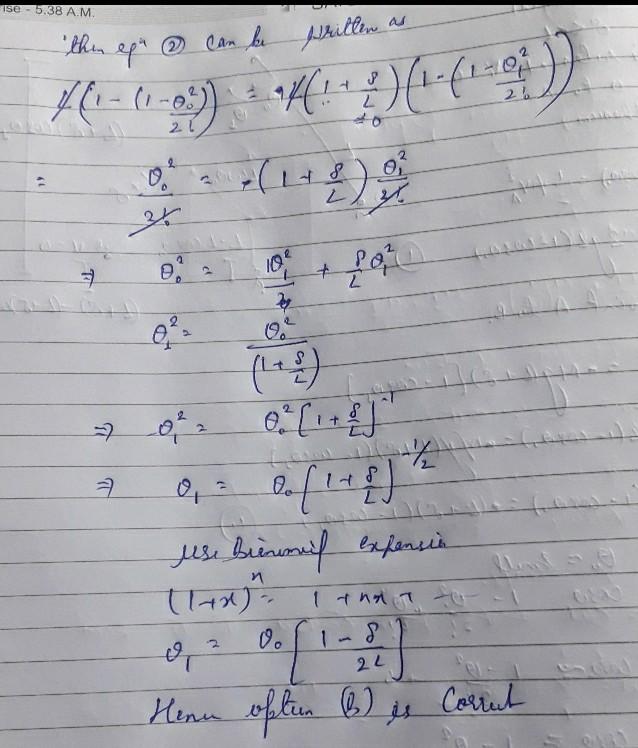 ise - 5.38 A.M.
then eqn ② can be written as
(1 - (1 - θ₀²/2!)) = (1 + δ/L)(1 - (1 - θ₁²/2!))
= θ₀²/2! = (1 + δ/L) θ₁²/2!
⇒ θ₀² = 1θ₁² + δ/L θ₁²
θ₁² = θ₀²/(1 + δ/L)
⇒ θ₁² = θ₀² [1 + δ/L]⁻¹
⇒ θ₁ = θ₀ [1 + δ/L]^-1/2
Use Binomial expansion
(1+x)ⁿ = 1 + nx +
θ₁ = θ₀ [1 - δ/2L]
Hence option (b) is Correct